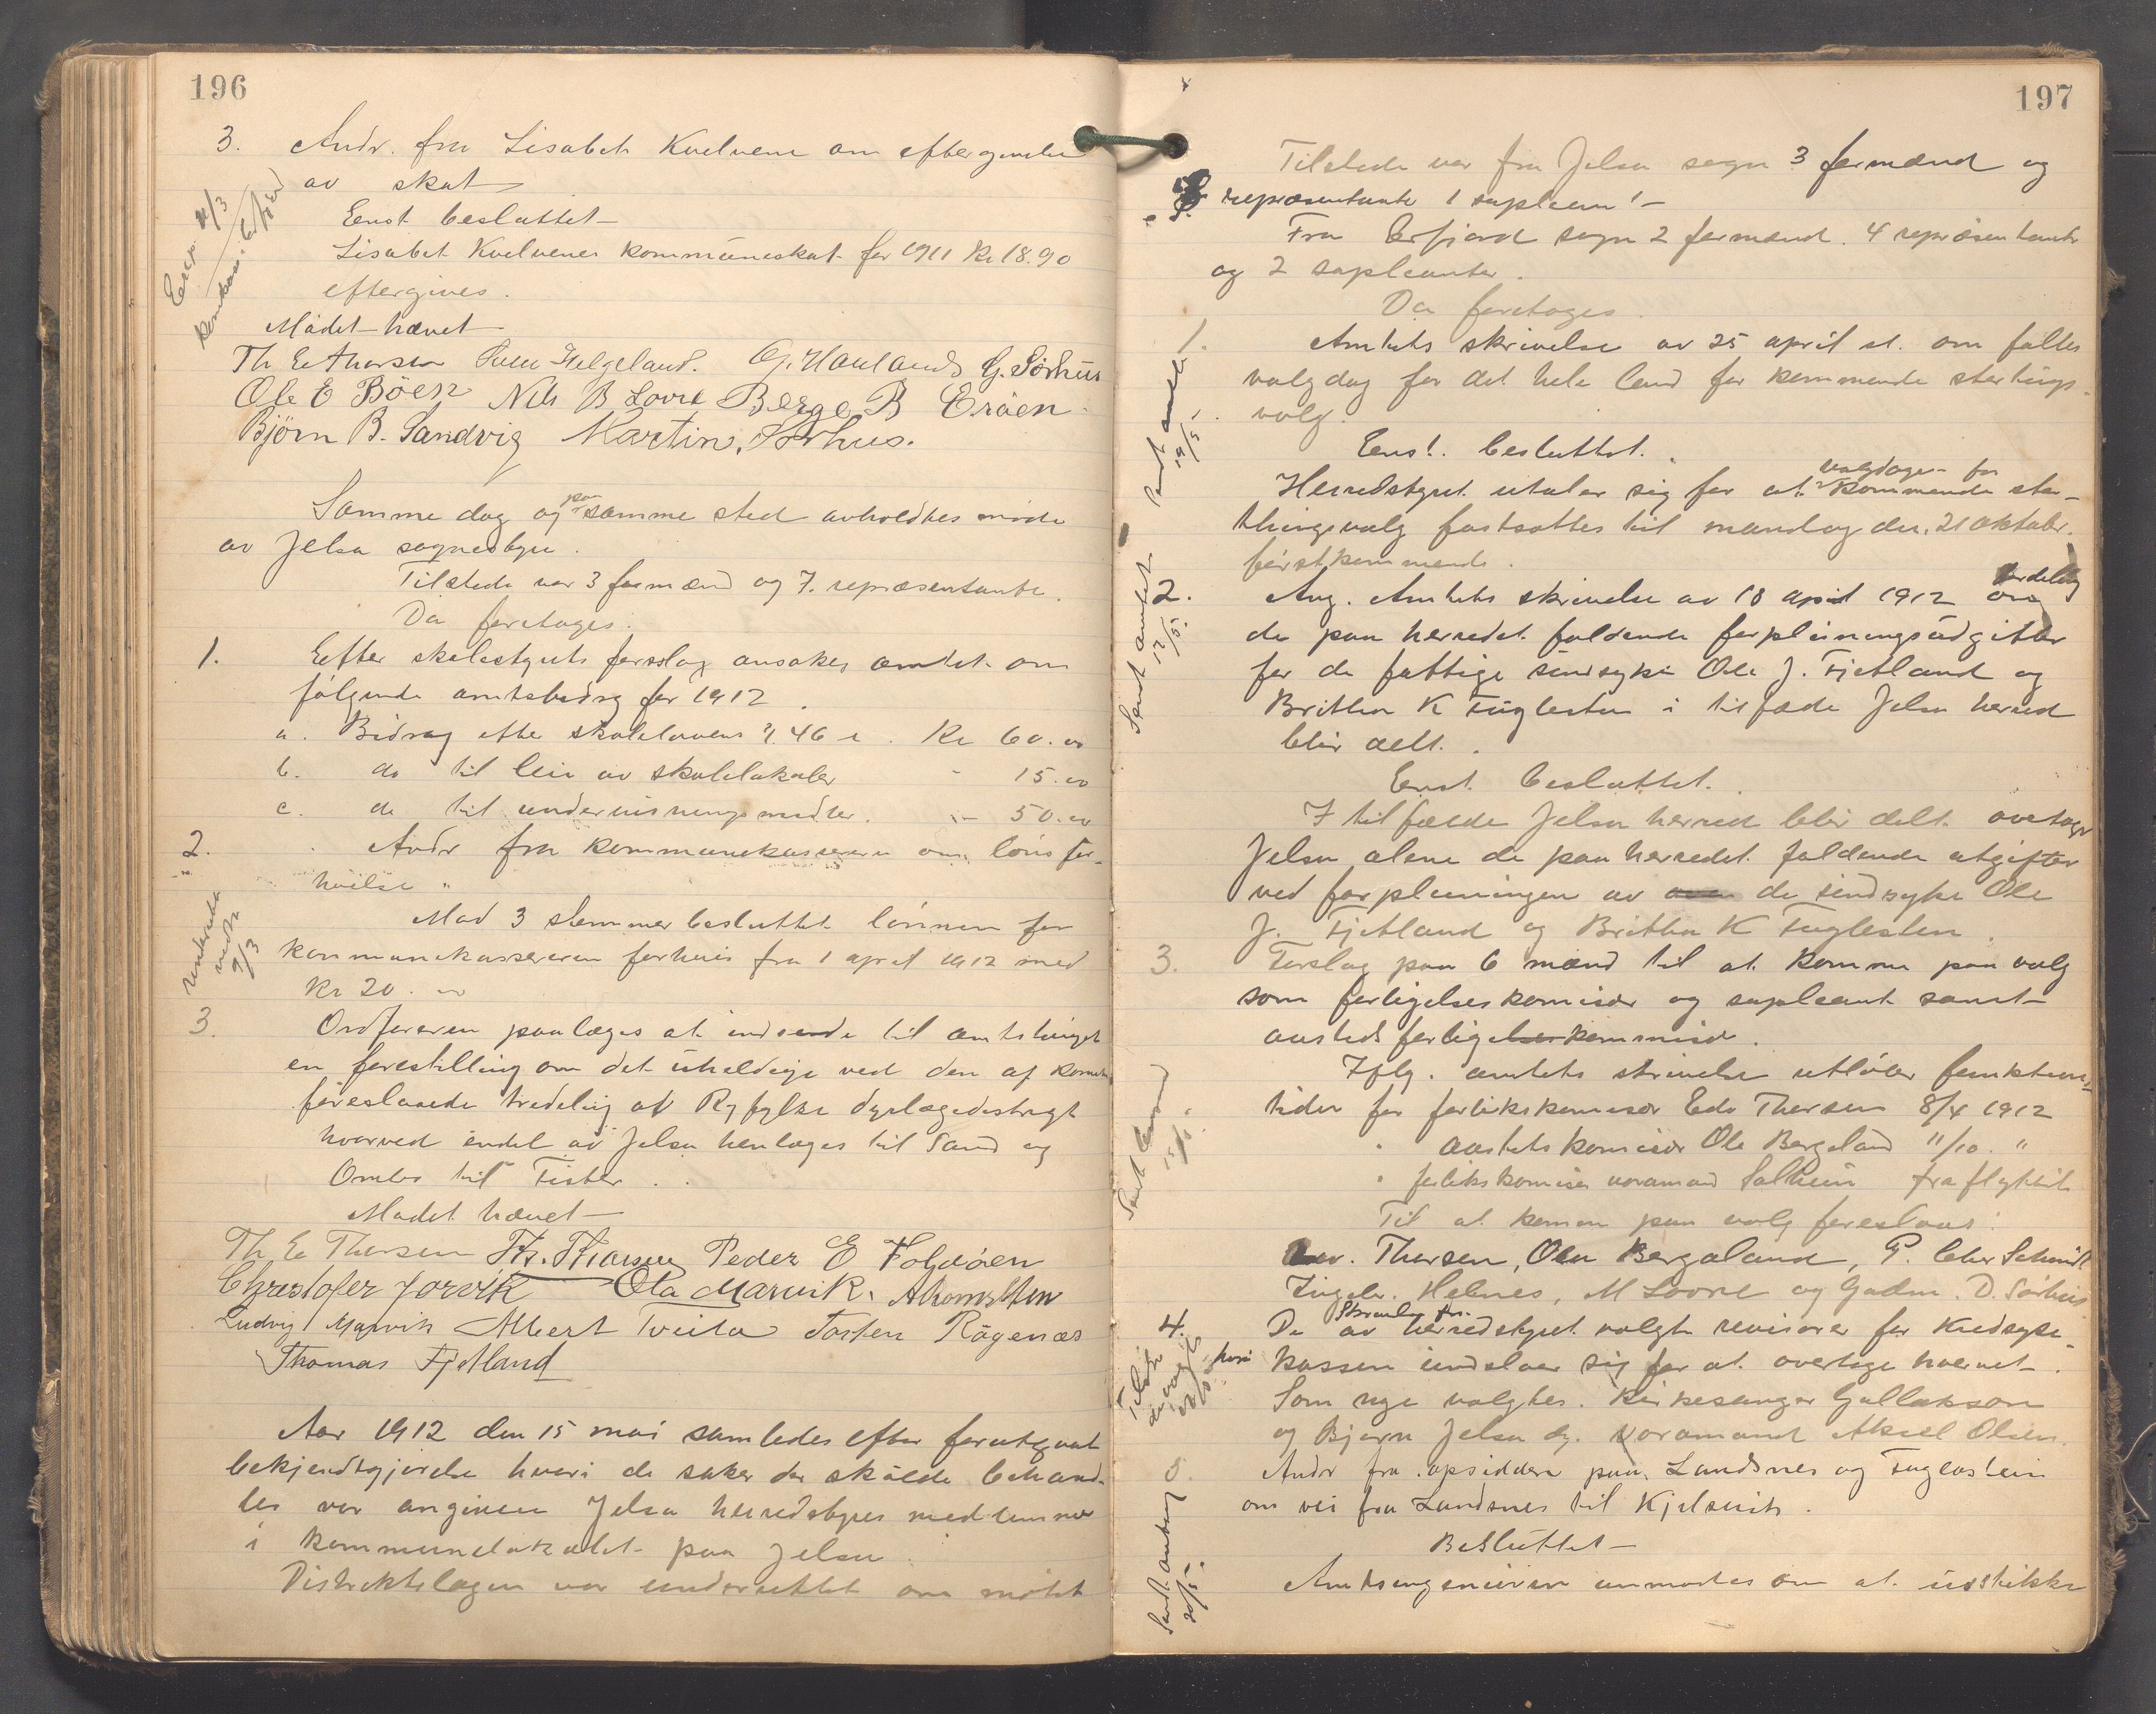 196
3. Andr. fra Lisabet Kvelvene om eftergivelse
av skat
Enst. besluttet
Lisabet Kvelvenes kommuneskat for 1911 Kr 18.90
eftergives.
Mødet hævet
Th E Thorsen Sven Helgeland. G. Hauland G. Sørhus
Ole E Böen Nils B Lovre Berge B Eröen.
Björn B. Sandvig Martin Sørhus.
Samme dag og paa samme sted avholdtes møde
av Jelsa sognestyre.
Tilstede var 3 formænd og 7. repræsentante.
Da foretoges.
1. Efter skolestyrets forslag ansøkes amtet om
følgende amtsbidrag for 1912.
a. Bidrag efter skolelovens § 46 Kr 60.00
b. do til leie av skolelokaler - 15.00
c. do til undervisningsmidler. - 50.00
2. Andr fra kommunekassereren om lønsfor-
høielse
Mod 3 stemmer besluttet lønnen for
kommunekassereren forhøies fra 1 april 1912 med
Kr 20.
3. Ordføreren paalægges at indsende til amtstinget
en forestilling om det uheldige ved den af
foreslaaede tredeling af Ryfylke dyrlægedistrigt
hvorved endel av Jelsa henlægges til Sand og
Ombo til Fister.
Mødet hævet
Th E Thorsen Peder E Foldøen
Christofer Jorvik Ola Marvik.
Ludvig Marvik Albert Tveita Torsten Rögenæs
Thomas Fjetland
Aar 1912 den 15 mai samledes efter forutgaat
bekjendtgjørelse hvori de saker der skulde behand-
les var angiven Jelsa herredstyres medlemmer
i kommunelokalet paa Jelsa.
Distriktslægen var underrettet om mötet
197
Tilstede var fra Jelsa sogn 3 formænd og
repræsentante 1 supleant
Fra Erfjord sogn 2 formænd. 4 repræsentante
og 2 supleanter.
Da foretoges.
1. Amtets skrivelse av 25 april d. om fælles
valgdag for det hele land for kommende stortings-
valg.
Enst. besluttet.
Herredstyret utaler sig for at valgdagen for kommende stor-
thingsvalg fastsættes til mandag den 21 oktober
førstkommende.
2. Ang. Amtets skrivelse av 18 april 1912 om fordeling
de paa herredet faldende forpleiningsudgifter
for de fattige sindsyke Ole J. Fjetland og
Britha K Fuglesten i tilfælde Jelsa herred
blir delt.
Enst. besluttet.
I tilfælde Jelsa herred blir delt overtager
Jelsa alene de paa herredet faldende utgifter
ved forpleiningen av de sindsyke Ole
J. Fjetland og Britha K Fuglesten.
3. Forslag paa 6 mænd til at komme paa valg
som forligelseskomisær og supleant samt
aasteds forligelseskommisær.
Iflg. amtets skrivelse utløber funktions-
tiden for forlikskomisær Edv Thorsen 8/4 1912
" aastedskomisær Ole Bergeland 11/10. "
" forlikskomisær varamand Solheim fraflyttet
Til at komme paa valg foreslaaes:
Edv. Thorsen, Ole Bergaland, P. Chr Schmidt
Ingebr. Helnes, M Lovre og Gudm. D. Sørhus
4. De av herredstyret valgte revisorer for kredsyke-
kassen undslaar sig for at overtage hvervet.
Som nye valgtes. Kirkesanger Gullakson
og Bjørn Jelsa dy. varamand Aksel Olsen.
5. Andr fra opsiddere paa Landsnes og Fuglestein
om vei fra Landsnes til Kjelsvik.
Besluttet
Amtsingeniøren anmodes om at utstikke